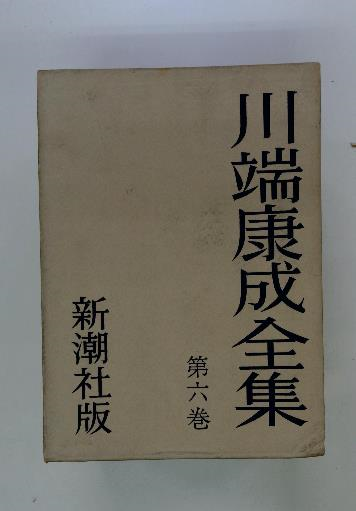 川端康成全集
第六巻
新潮社版